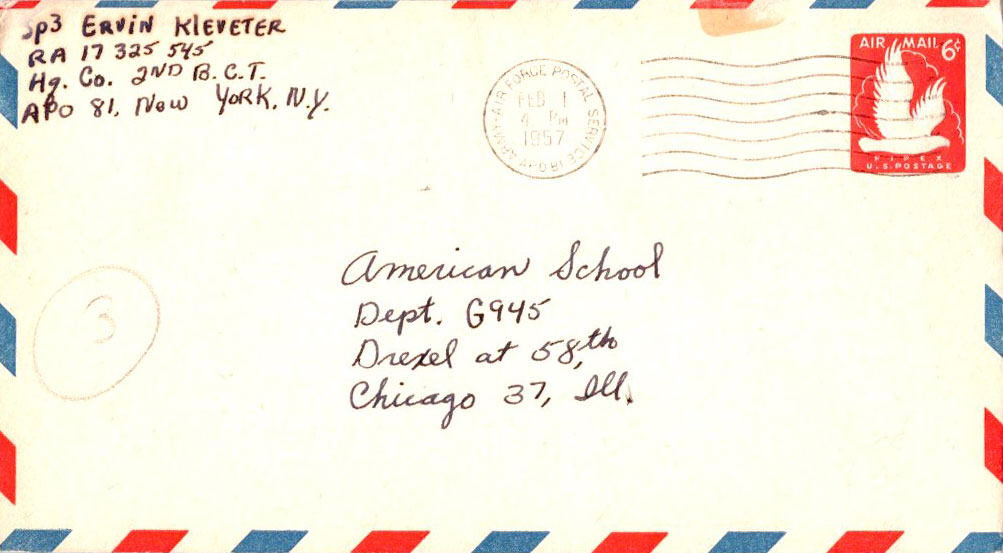 Sp3 ERVIN KLEVETER
RA 17 325 545
Hq. Co. 2ND B.C.T.
APO 81, New YORK, N.Y.
ARMY-AIR FORCE POSTAL SERVICE
FEB 1
4 PM
1957
APO 81
AIR MAIL 6¢
FIPEX
U.S. POSTAGE
3
American School
Dept. G945
Drexel at 58,th
Chicago 37, Ill.